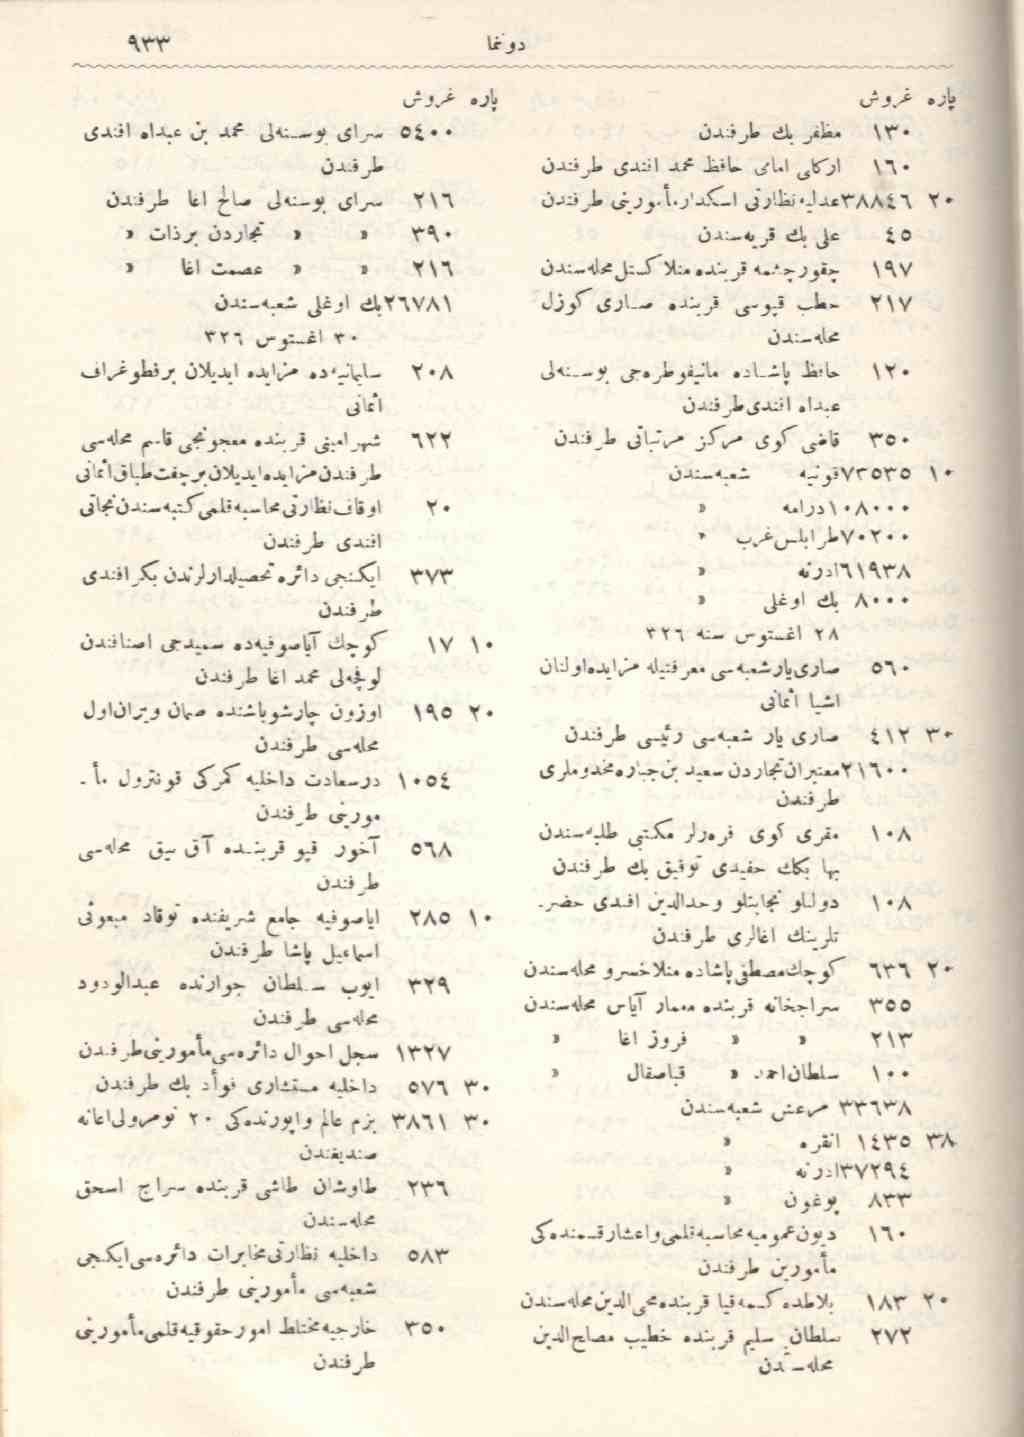 ٩٣٣ دونما
پاره غروش
١٣٠ مظفر بك طرفندن
١٦٠ اركلی امامی حافظ محمد افندی طرفندن
٢٠ ٣٨٨٤٦ عدلیه نظارتی اسكدار مأمورینی طرفندن
٤٥ علی بك قریه‌سندن
١٩٧ چقورچشمه قربنده منلا كستل محله‌سندن
٢١٧ حطب قپوسی قربنده صاری كوزل
محله‌سندن
١٢٠ حافظ پاشاده مانیفوطره‌جی بوسنه‌لی
عبداه افندی طرفندن
٣٥٠ قاضی كوی مركز مرتباتی طرفندن
١٠ ٧٣٥٣٥ قونیه شعبه‌سندن
١٠٨٠٠٠ درامه »
٧٠٢٠٠ طرابلس‌غرب »
٦١٩٣٨ ادرنه »
٨٠٠٠ بك اوغلی »
٢٨ اغستوس سنه ٣٢٦
٥٦٠ صاری‌یار شعبه‌سی معرفتیله مزایده اولنان
اشیا اثمانی
٣٠ ٤١٢ صاری یار شعبه‌سی رئیسی طرفندن
٢١٦٠٠ معتبران تجاردن سعید بن جباره مخدوملری
طرفندن
١٠٨ مقری كوی فره‌رلر مكتبی طلبه‌سندن
بها بكك حفیدی توفیق بك طرفندن
١٠٨ دولتلو نجابتلو وحدالدین افندی حضر-
تلرینك اغالری طرفندن
٢٠ ٦٣٦ كوچك مصطفی پاشاده منلا خسرو محله‌سندن
٣٥٥ سراجخانه قربنده معمار آیاس محله‌سندن
٢١٣ » » فروز اغا »
١٠٠ سلطان احمد » قباصقال »
٣٣٦٣٨ مرعش شعبه‌سندن
٣٨ ١٤٣٥ انقره »
٣٧٢٩٤ ادرنه »
٨٣٣ پوغون »
١٦٠ دیون عمومیه محاسبه قلمی و اعشار قسمنده‌كی
مأمورین طرفندن
٢٠ ١٨٣ بلاطده كسمه قیا قربنده محی الدین محله‌سندن
٢٧٢ سلطان سلیم قربنده خطیب مصلح الدین
محله‌سندن
پاره غروش
٥٤٠٠ سرای بوسنه‌لی محمد بن عبداه افندی
طرفندن
٢١٦ سرای بوسنه‌لی صالح اغا طرفندن
٣٩٠ » » تجاردن برذات »
٢١٦ » » عصمت اغا »
٢٦٧٨١ بك اوغلی شعبه‌سندن
٣٠ اغستوس ٣٢٦
٢٠٨ سلیمانیه‌ده مزایده ایدیلان برفطوغراف
اثمانی
٦٢٢ شهرامینی قربنده معجونجی قاسم محله‌سی
طرفندن مزایده ایدیلان برچفت طباق اثمانی
٢٠ اوقاف نظارتی محاسبه قلمی كتبه‌سندن نجاتی
افندی طرفندن
٣٧٣ ایكنجی دائره تحصیلدارلرندن بكر افندی
طرفندن
١٠ ١٧ كوچك آیاصوفیه‌ده سمیدجی اصنافندن
لوفچه‌لی محمد اغا طرفندن
٢٠ ١٩٥ اوزون چارشوباشنده صمان ویران اول
محله‌سی طرفندن
١٠٥٤ درسعادت داخلیه كمركی قونترول مأ-
مورینی طرفندن
٥٦٨ آخور قپو قربنده آق بیق محله‌سی
طرفندن
١٠ ٢٨٥ ایاصوفیه جامع شریفنده توقاد مبعوثی
اسماعیل پاشا طرفندن
٣٢٩ ایوب سلطان جوارنده عبدالودود
محله‌سی طرفندن
١٣٢٧ سجل احوال دائره‌سی مأمورینی طرفندن
٣٠ ٥٧٦ داخلیه مستشاری فوأد بك طرفندن
٣٠ ٣٨٦١ بزم عالم واپورنده‌كی ٢٠ نومرولی اعانه
صندیغندن
٢٣٦ طاوشان طاشی قربنده سراج اسحق
محله‌سندن
٥٨٣ داخلیه نظارتی مخابرات دائره‌سی ایكنجی
شعبه‌سی مأمورینی طرفندن
٣٥٠ خارجیه مختلط امور حقوقیه قلمی مأمورینی
طرفندن